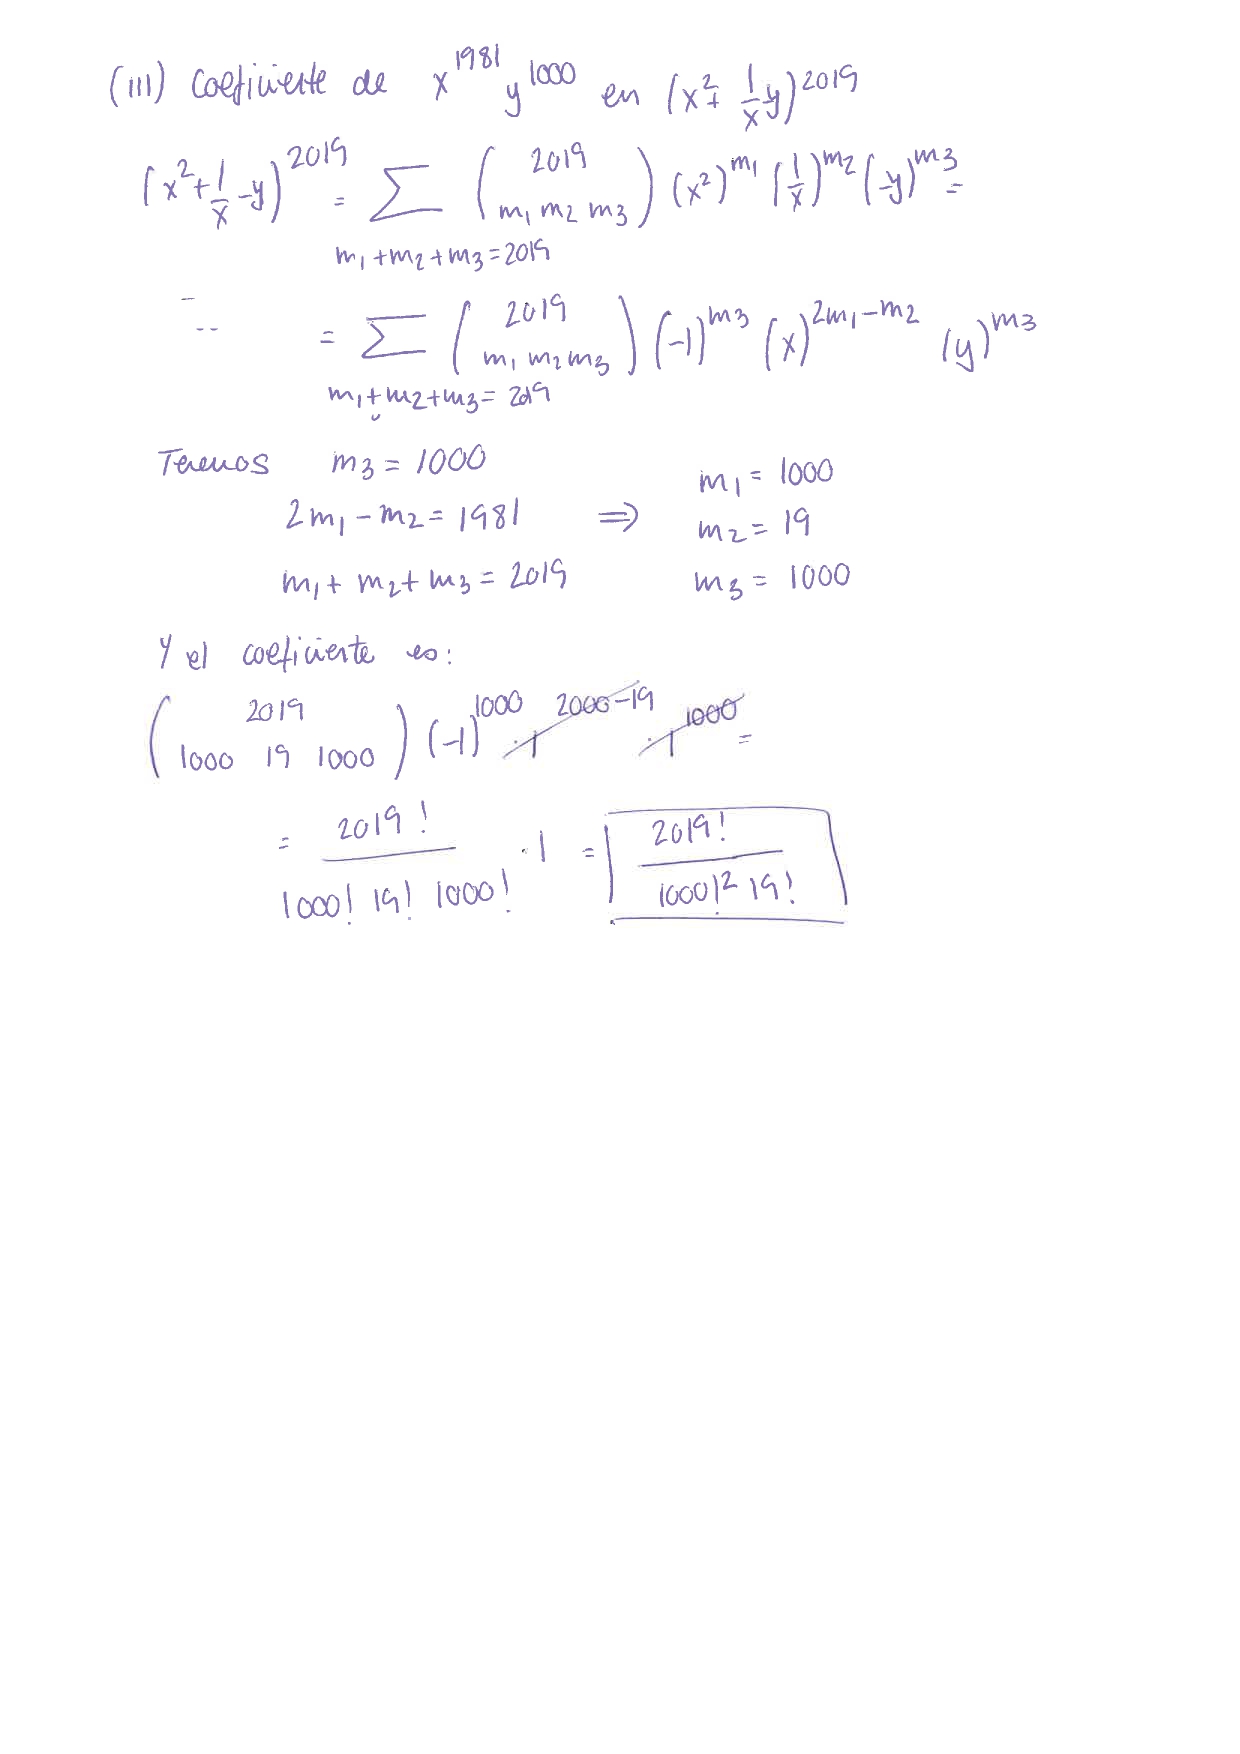 (III) Coeficiente de x^1981 y^1000 en (x^2 + 1/x - y)^2019
(x^2 + 1/x - y)^2019 = Σ (2019 m1 m2 m3) (x^2)^m1 (1/x)^m2 (-y)^m3 =
m1 + m2 + m3 = 2019
= Σ (2019 m1 m2 m3) (-1)^m3 (x)^2m1-m2 (y)^m3
m1 + m2 + m3 = 2019
Tenemos m3 = 1000
2m1 - m2 = 1981 ⇒
m1 + m2 + m3 = 2019
m1 = 1000
m2 = 19
m3 = 1000
Y el coeficiente es:
(2019 1000 19 1000) (-1)^1000 · 1^2000-19 · 1^1000 =
= 2019! / 1000! 19! 1000! · 1 = 2019! / 1000!^2 19!